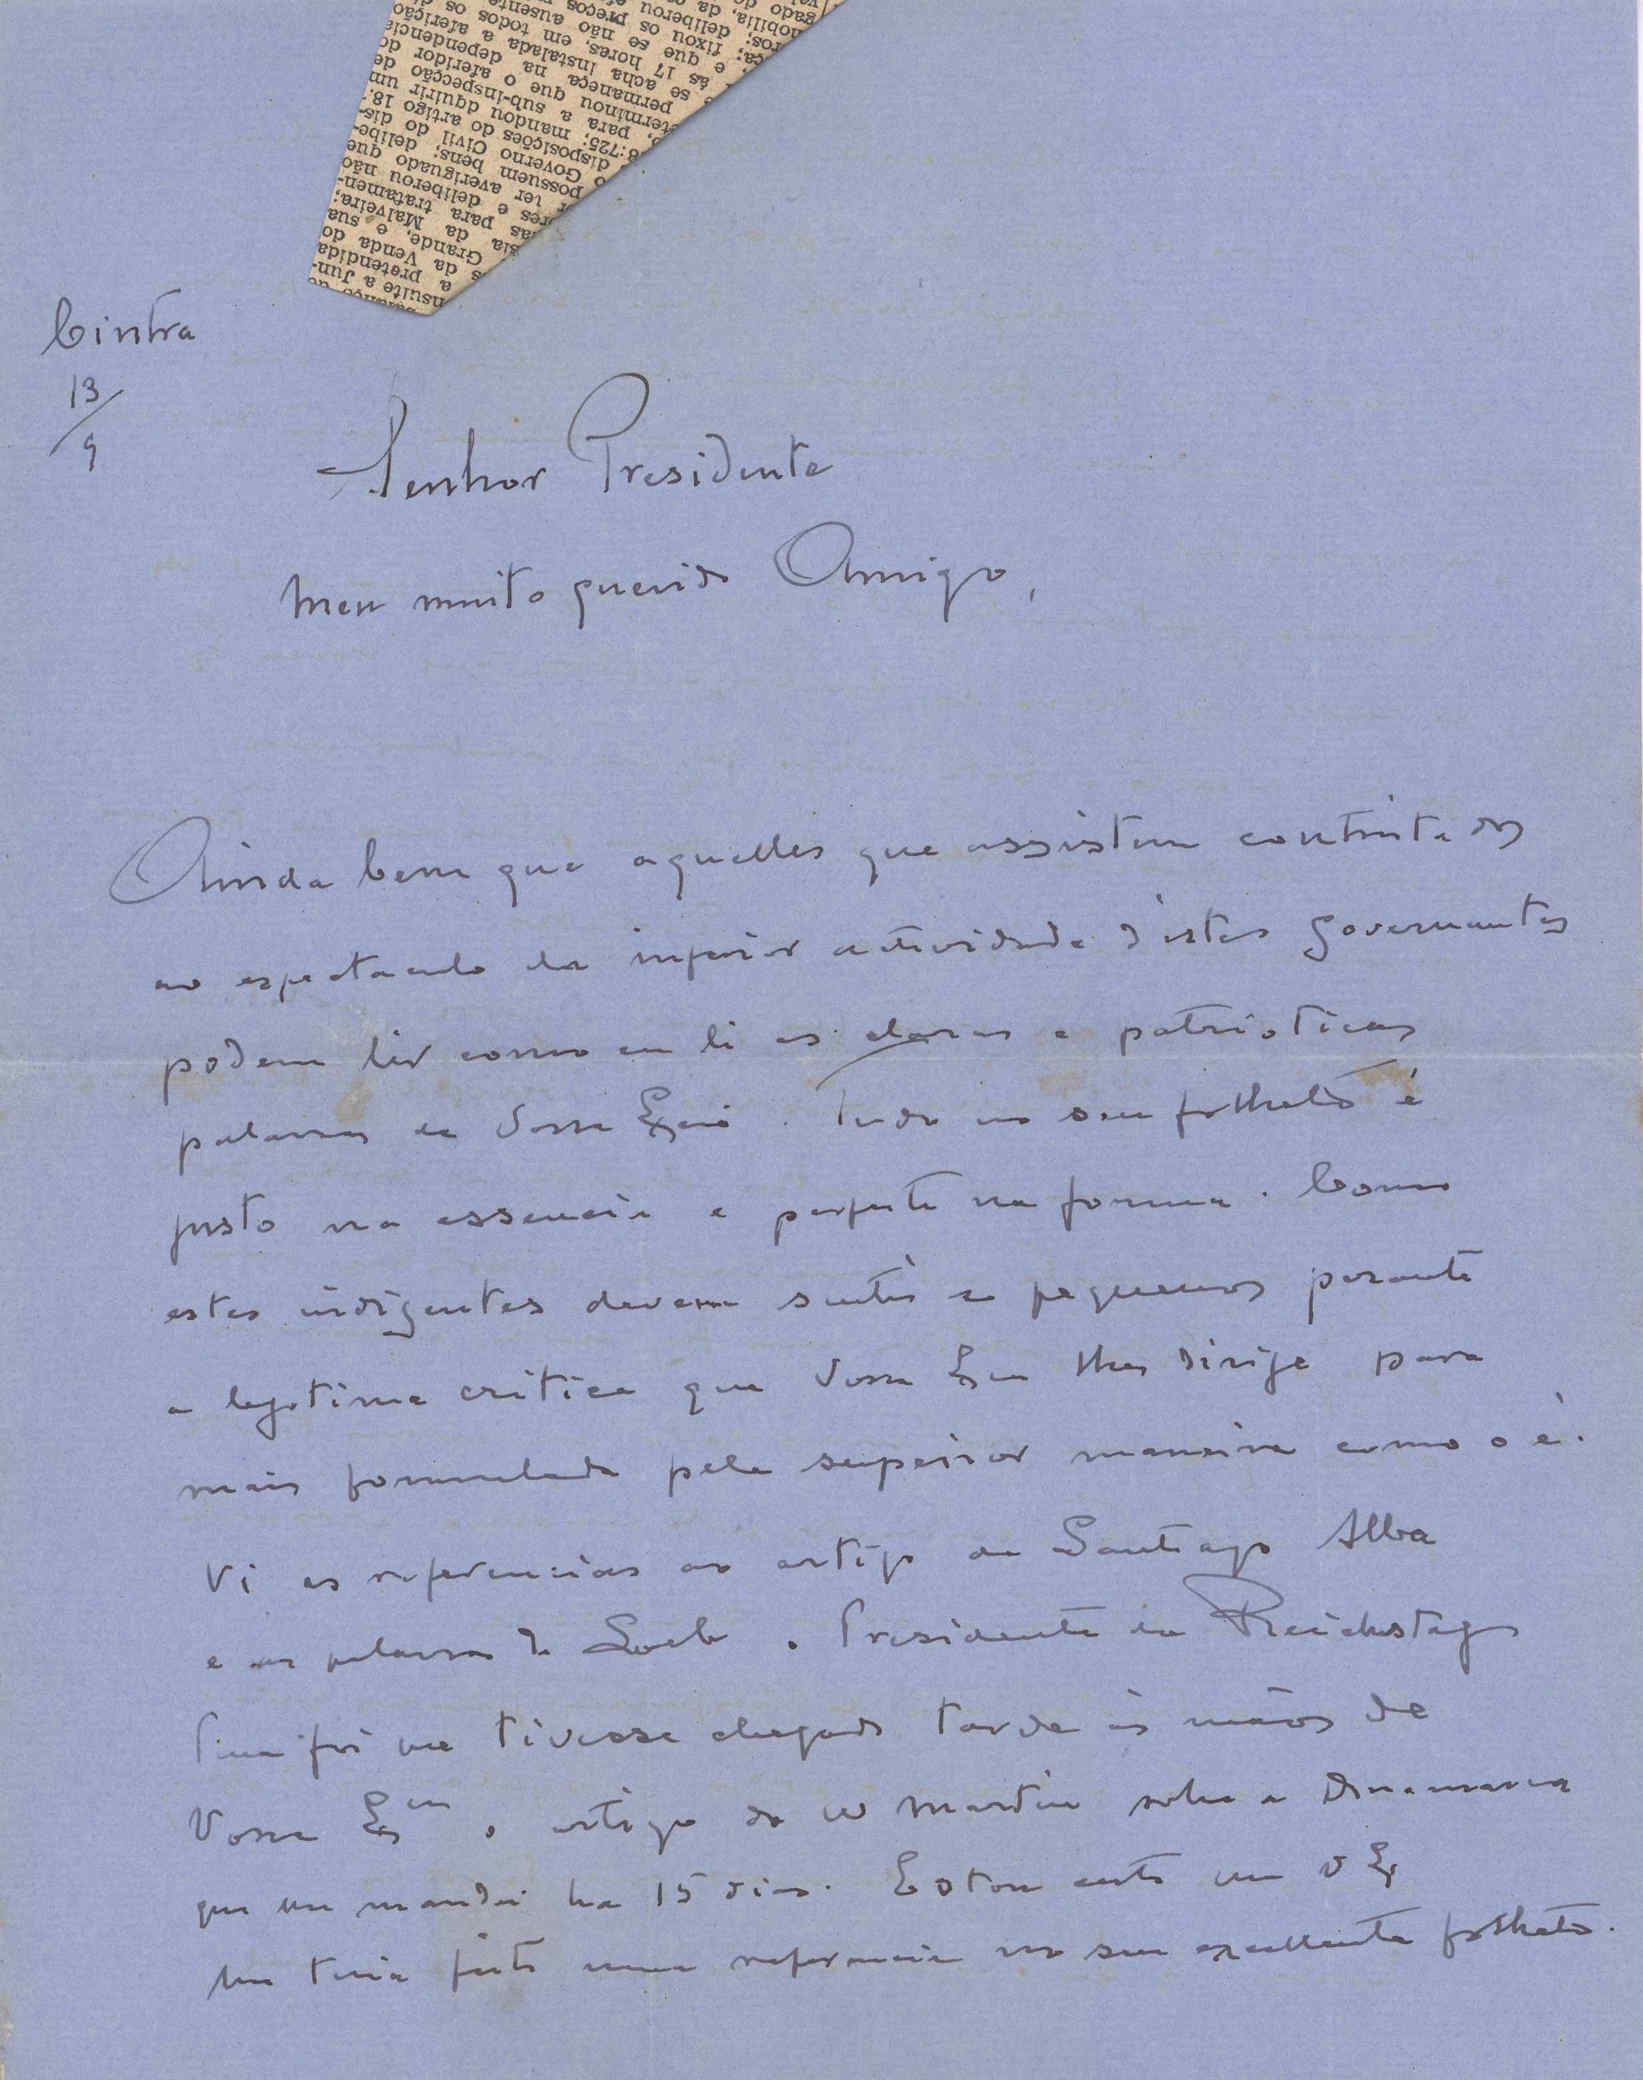 Cintra
13/9
Senhor Presidente
Meu muito querido Amigo,
Ainda bem que aquelles que assistem contristados
ao espectaculo da inferior actividade d'estes governantes
podem ler como eu li as claras e patrioticas
palavras de Vossa Exciª. Tudo no seu folheto é
justo na essencia e perfeito na forma. Como
estes indigentes devem sentir-se pequenos perante
a legitima critica que Vossa Exª lhes dirige para
mais formulada pela superior maneira como o é.
Vi as referencias ao artigo de Santiago Alba
e as palavras de Loeb o Presidente do Reichstag
Pena foi que tivesse chegado tarde ás mãos de
Vossa Exciª o artigo do W Martin sobre a Dinamarca
que eu mandei ha 15 dias. Estou certo que V Ex
lhe teria feito uma referencia no seu excellente folheto.
nsulte a Jun-
a pretendida
s da Venda do
Grande, e sua
sia da Malveira;
uas para tratamen-
res e deliberou não
r ter averiguado que
possuem bens; delibe-
o Governo Civil do dis-
disposições do artigo 18.
8:725; mandou adquirir um
para a sub-inspecção de
terminou que o aferidor do
permaneça na dependencia
se acha instalada a aferição
ás 17 hores, em todos os
e que se não ausente
ça; fixou os preços
ros; deliberou
mobilia, da
gado do